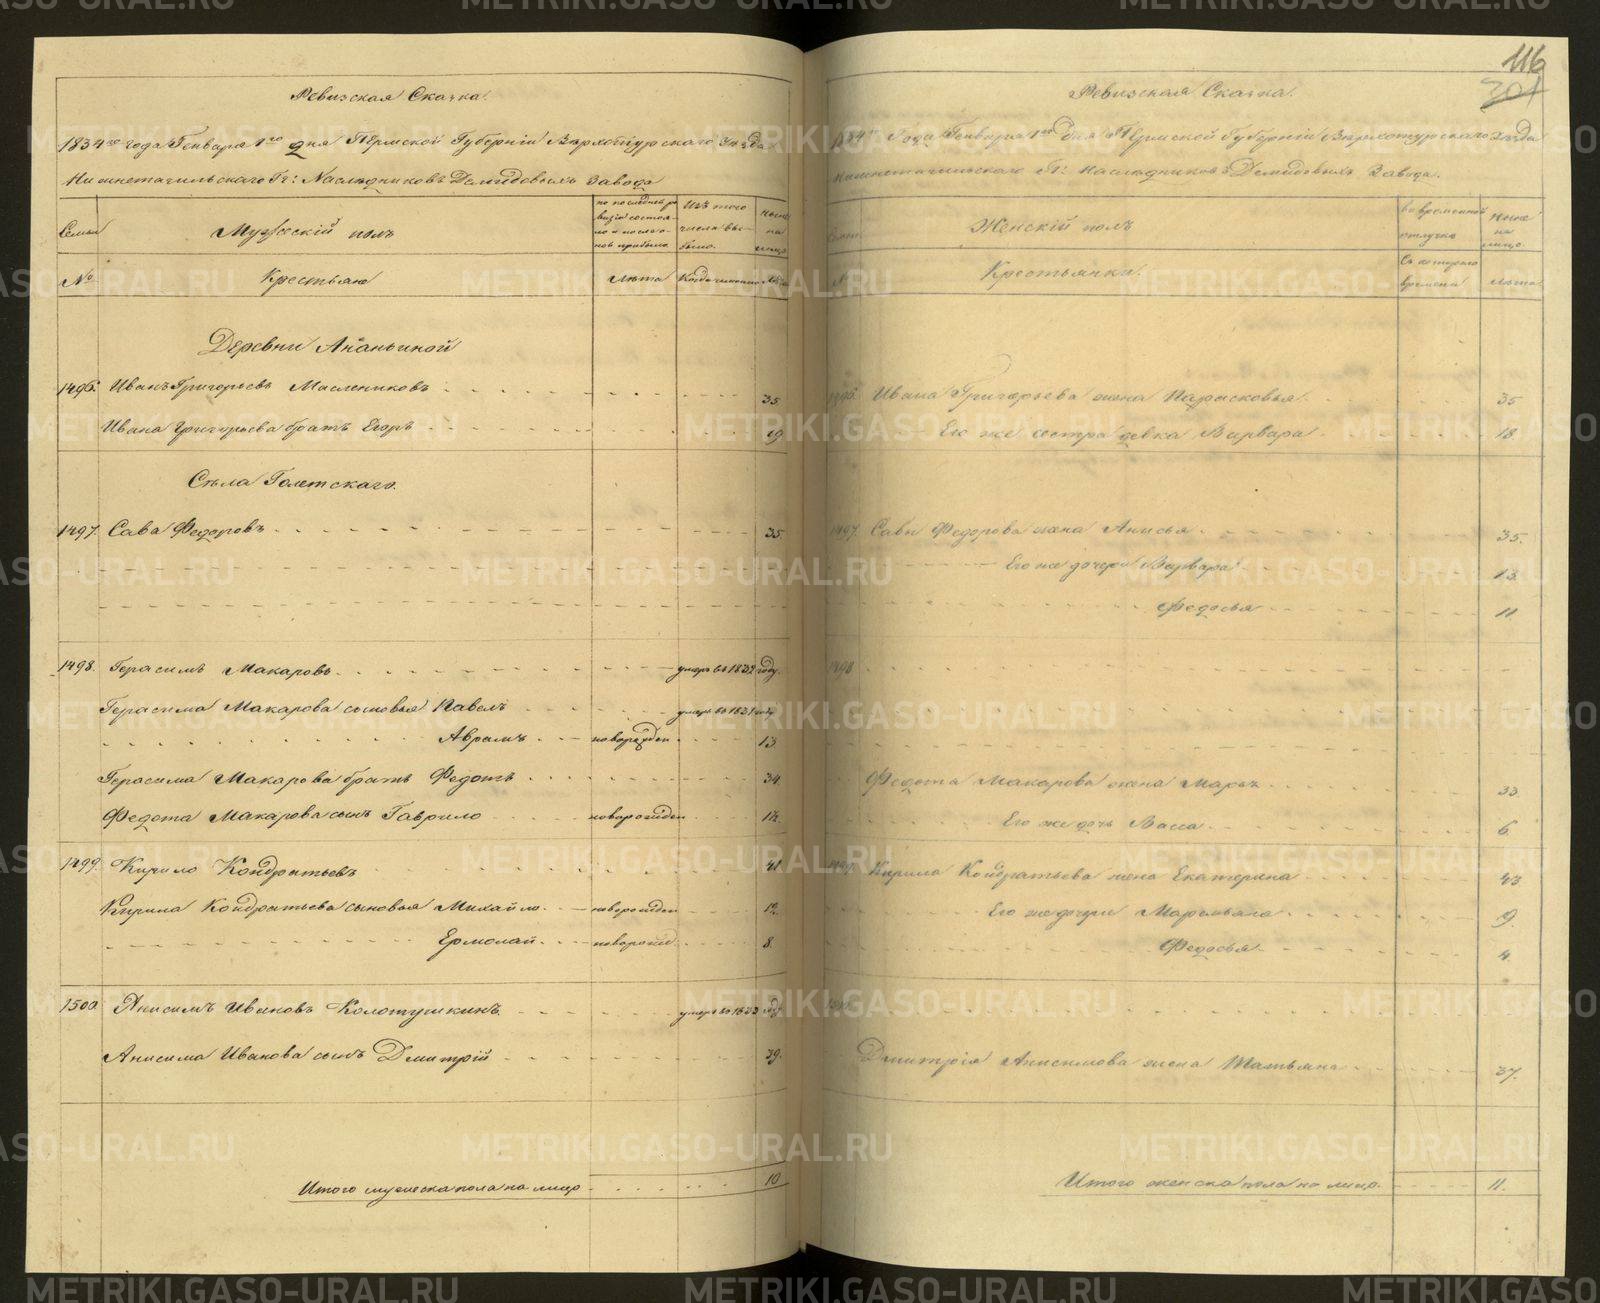 Ревизская Сказка.
1834го года Генваря 1го дня Пермской Губернiи Верхотурскаго Уезда
Нижнетагильскаго Гг: Наследниковъ Демидовыхъ Завода
Семьи
Мужескiй полъ
по последней ревизiи состояло и после оной прибыло
Изъ того числа выбыло.
ныне на лицо
№
Крестьяне
Лета
Когда именно
Лета
Деревни Ананьиной
1496. Иванъ Григорьевъ Маслениковъ 35.
Ивана Григорьева братъ Егоръ 19.
Села
1497. Сава Федоровъ 35
1498. Герасимъ Макаровъ умеръ въ 1832 году.
Герасима Макарова сыновья Павелъ умеръ въ году
Аврамъ новорожден 13.
Герасима Макарова братъ Федотъ 34.
Федота Макарова сынъ Гаврило новорожден 12.
1499. Кирило Кондратьевъ 41.
Кирила Кондратьева сыновья Михайло новорожден 12.
Ермолай новорожд. 8.
1500. Анисимъ Ивановъ Колотушкинъ умеръ въ 1833 году
Анисима Иванова сынъ Дмитрiй 39.
Итого мужеска пола на лицо 10
116
301
Ревизская Сказка.
1834го Года Генваря 1го Дня Пермской Губернiи Верхотурскаго Уезда
Нижнетагильскаго Гг: Наследниковъ Демидовыхъ Завода.
Семьи
Женскiй полъ
во временной отлучке
ныне на лицо.
№
Крестьянки.
Съ котораго времени
Лета
1496. Ивана Григорьева жена Парасковья 35
Его же сестра девка Варвара 18.
1497. Савы Федорова жена Анисья 35.
Его же дочери Варвара 13.
Федосья 11
1498
Федота Макарова жена Марья 33.
Его же дочь Васса 6.
1499. Кирила Кондратьева жена Екатерина 43
Его же дочери 9.
Федосья 4.
1500.
Дмитрiя Анисимова жена Татьяна 37.
Итого женска пола на лицо. 11.
METRIKI.GASO-URAL.RU